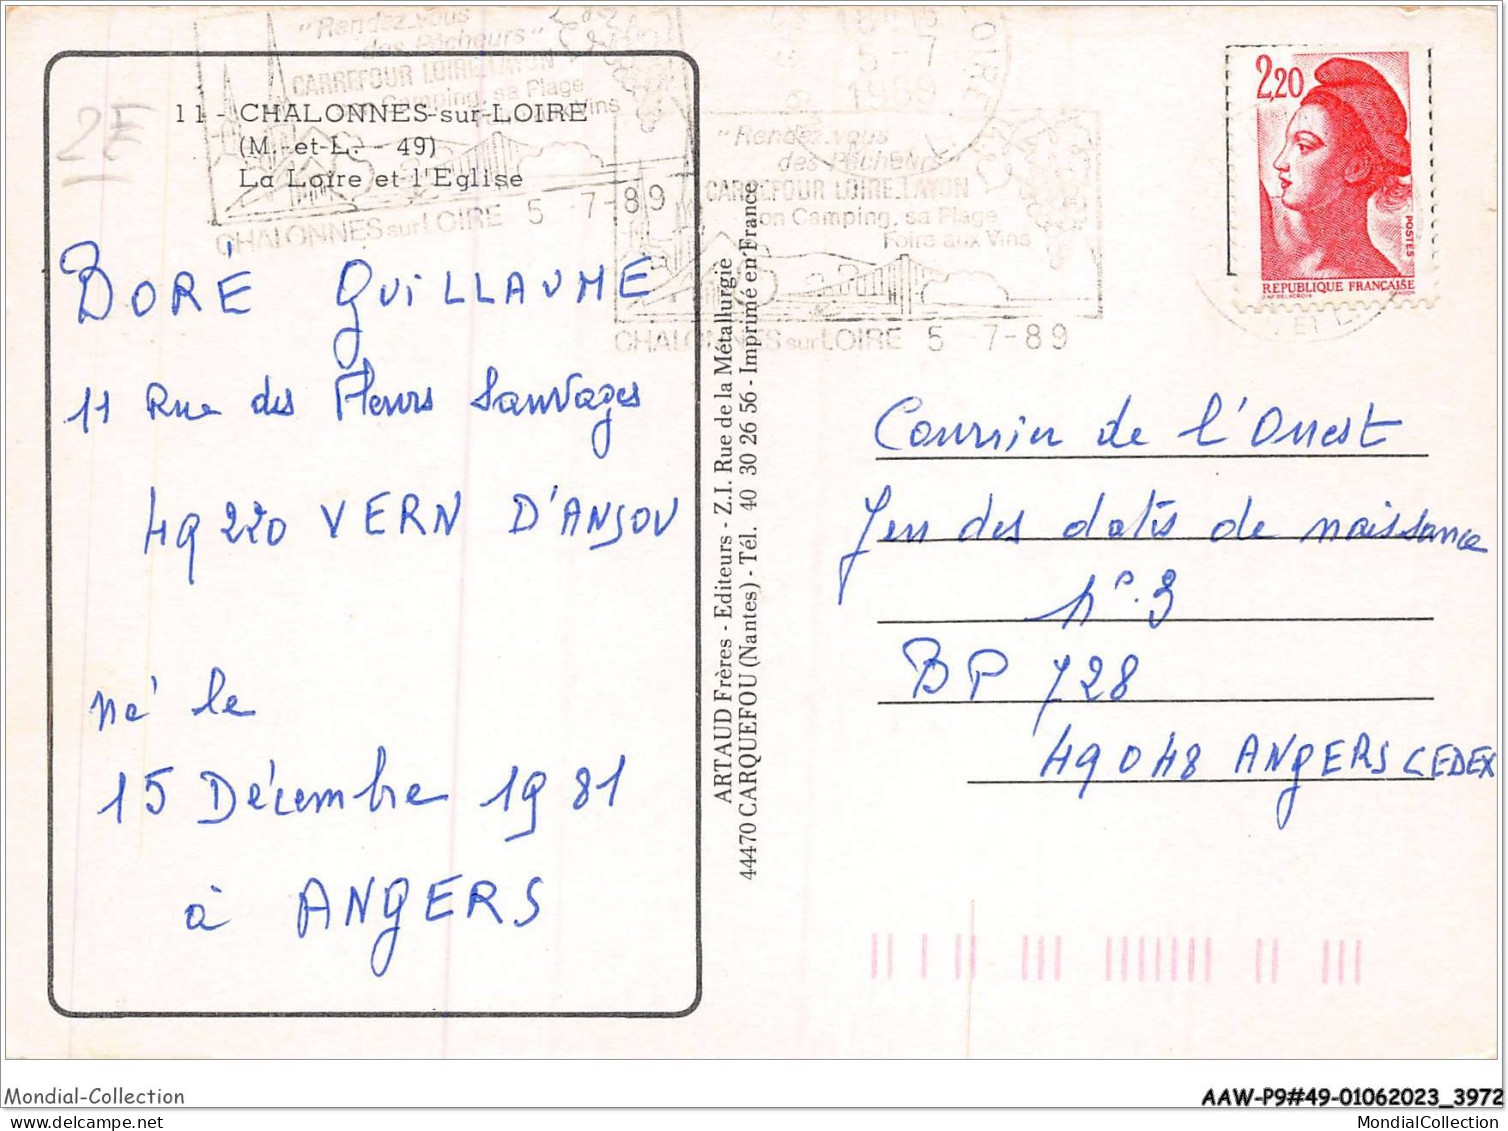 "Rendez-vous
des Pêcheurs"
CARREFOUR LOIRE.LAYON
Camping, sa Plage
Vins
CHALONNES sur LOIRE 5 7-89
2F
11 - CHALONNES-sur-LOIRE
(M.-et-L. - 49)
La Loire et l'Eglise
BORÉ GUILLAUME
11 Rue des Fleurs Sauvages
49220 VERN D'ANJOU
né le
15 Décembre 1981
à ANGERS
ARTAUD Frères - Editeurs - Z.I. Rue de la Métallurgie
44470 CARQUEFOU (Nantes) - Tél. 40 30 26 56 - Imprimé en France
5-7
1989
LOIRE
"Rendez-vous
des Pêcheurs"
CARREFOUR LOIRE.LAYON
son Camping, sa Plage
Foire aux Vins
CHALONNES sur LOIRE 5 7-89
2,20
POSTES
REPUBLIQUE FRANÇAISE
D'AP. DELACROIX GANDON
Courrier de l'Ouest
Jeu des dates de naissance
n° 3
BP 728
49048 ANGERS CEDEX
Mondial-Collection
AAW-P9#49-01062023_3972
MondialCollection